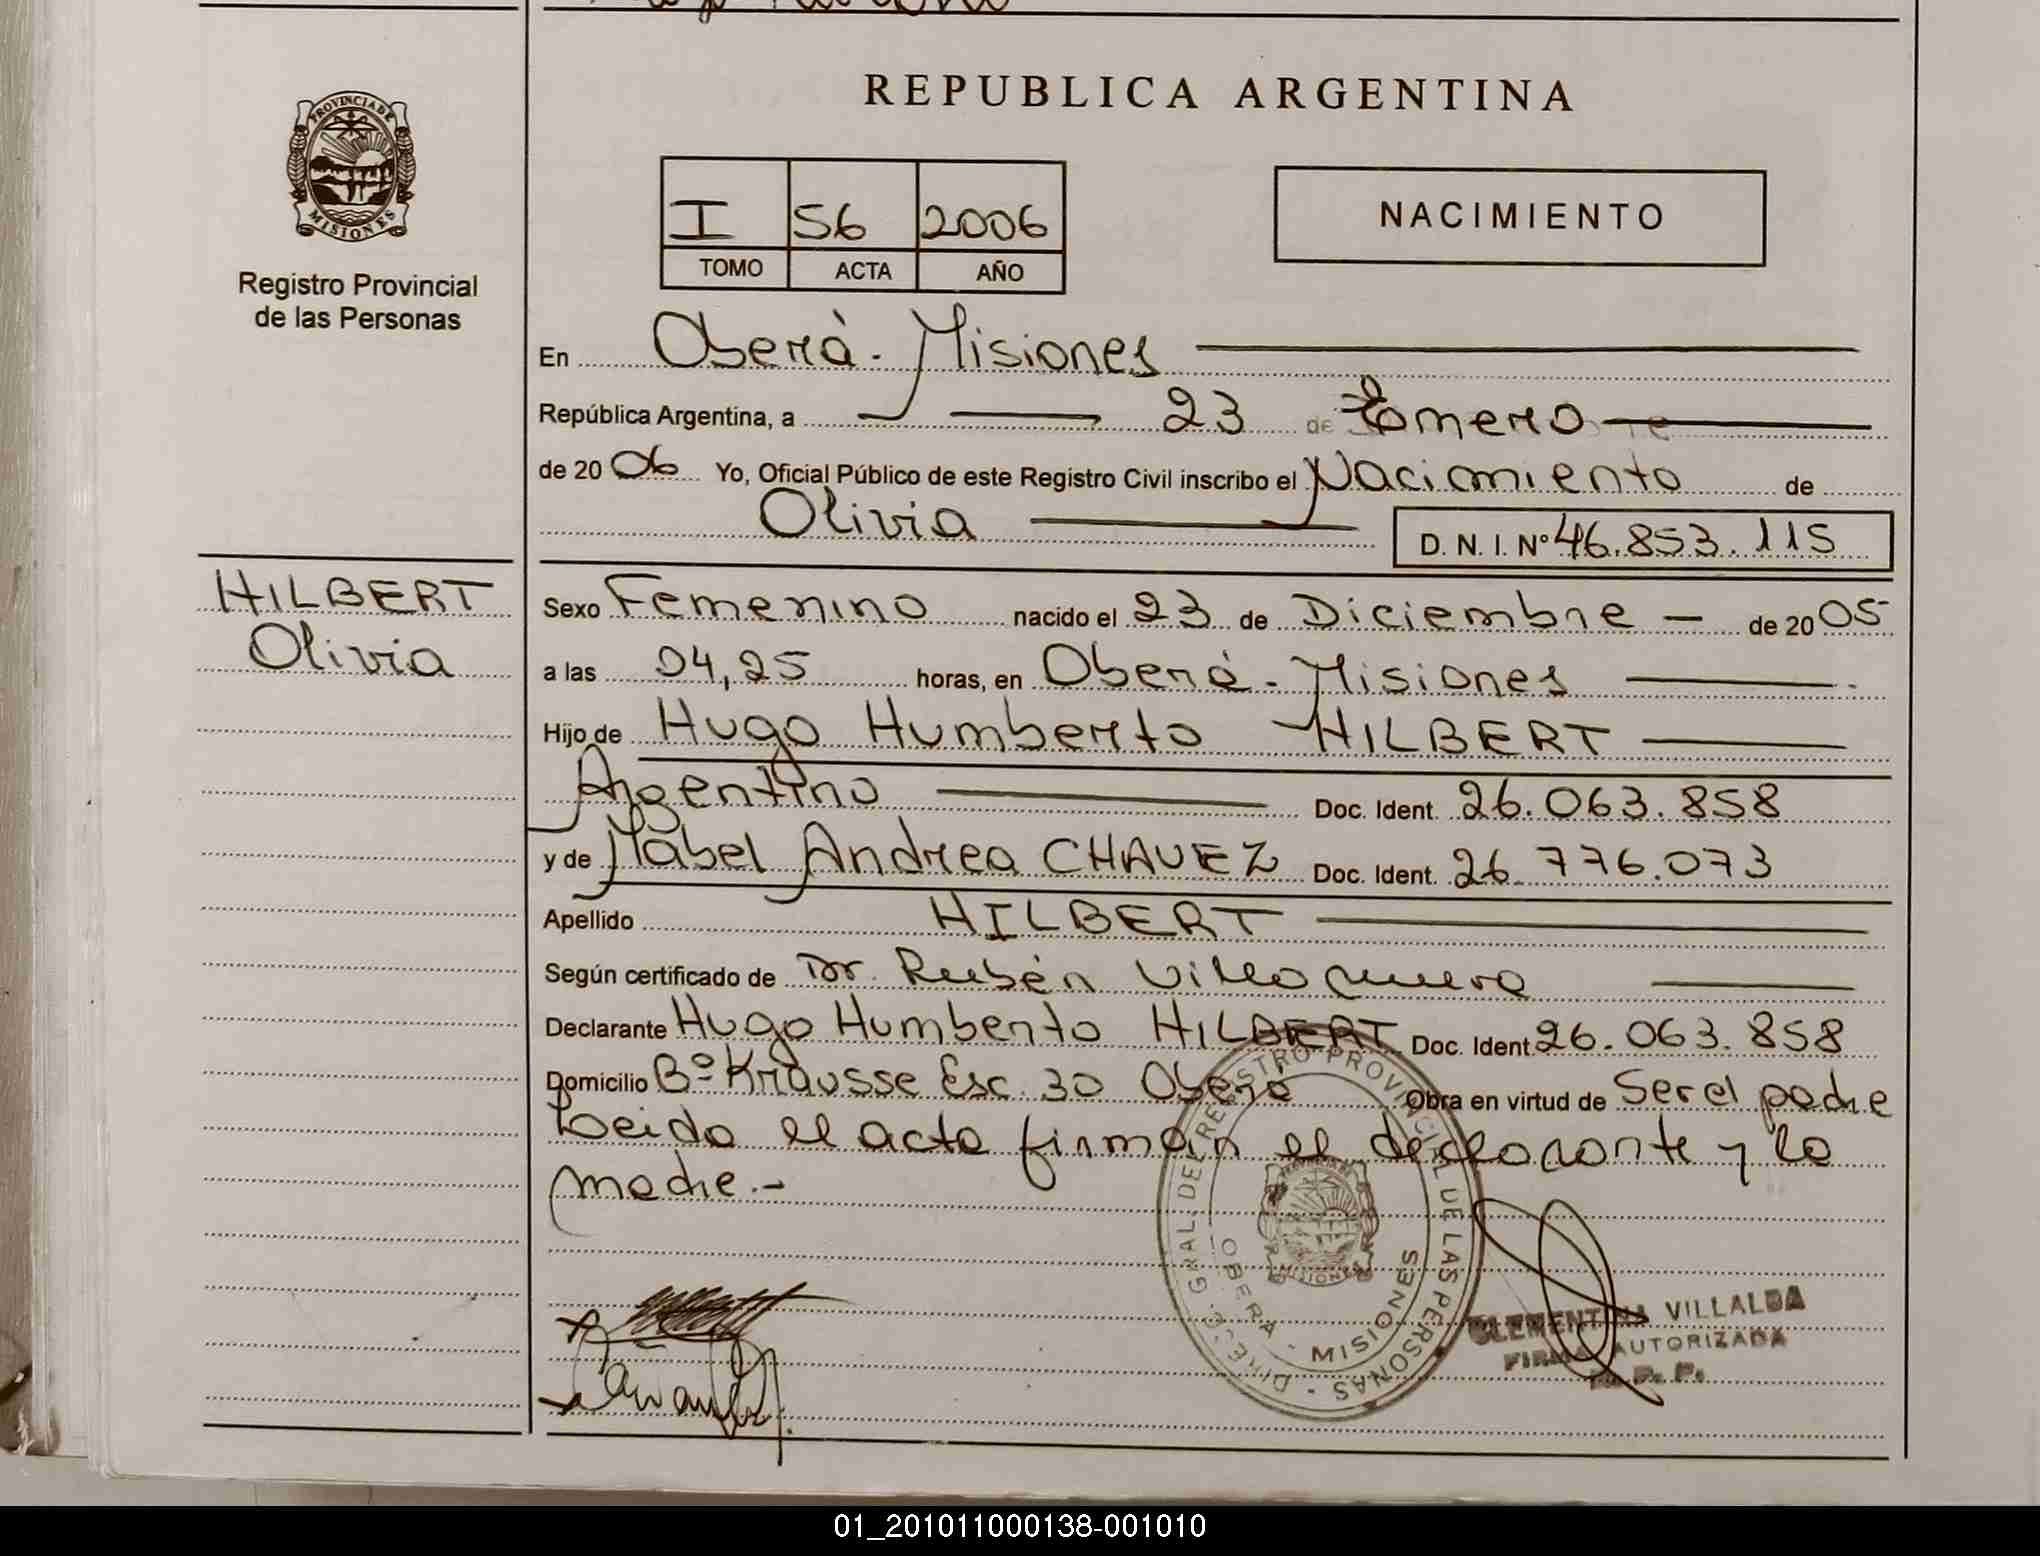 REPUBLICA ARGENTINA
PROVINCIA DE
MISIONES
Registro Provincial
de las Personas
I 56 2006
TOMO ACTA AÑO
NACIMIENTO
En Oberá - Misiones
República Argentina, a 23 de Enero
de 20 06 Yo, Oficial Público de este Registro Civil inscribo el Nacimiento de
Olivia D. N. I. Nº 46.853.115
HILBERT
Olivia
Sexo Femenino nacido el 23 de Diciembre - de 20 05
a las 04,25 horas, en Oberá - Misiones
Hijo de Hugo Humberto HILBERT
Argentino Doc. Ident. 26.063.858
y de Mabel Andrea CHAVEZ Doc. Ident. 26.776.073
Apellido HILBERT
Según certificado de Dr. Rubén Villanueva
Declarante Hugo Humberto HILBERT Doc. Ident 26.063.858
Domicilio Bº Krausse Esc. 30 Oberá Obra en virtud de Ser el padre
Leida el acta firman el declarante y la
madre.-
DIRECC. GRAL. DE REGISTRO PROVINCIAL DE LAS PERSONAS -
OBERA - MISIONES
MISIONES
CLEMENTINA VILLALBA
FIRMA AUTORIZADA
R. P. P.
01_201011000138-001010